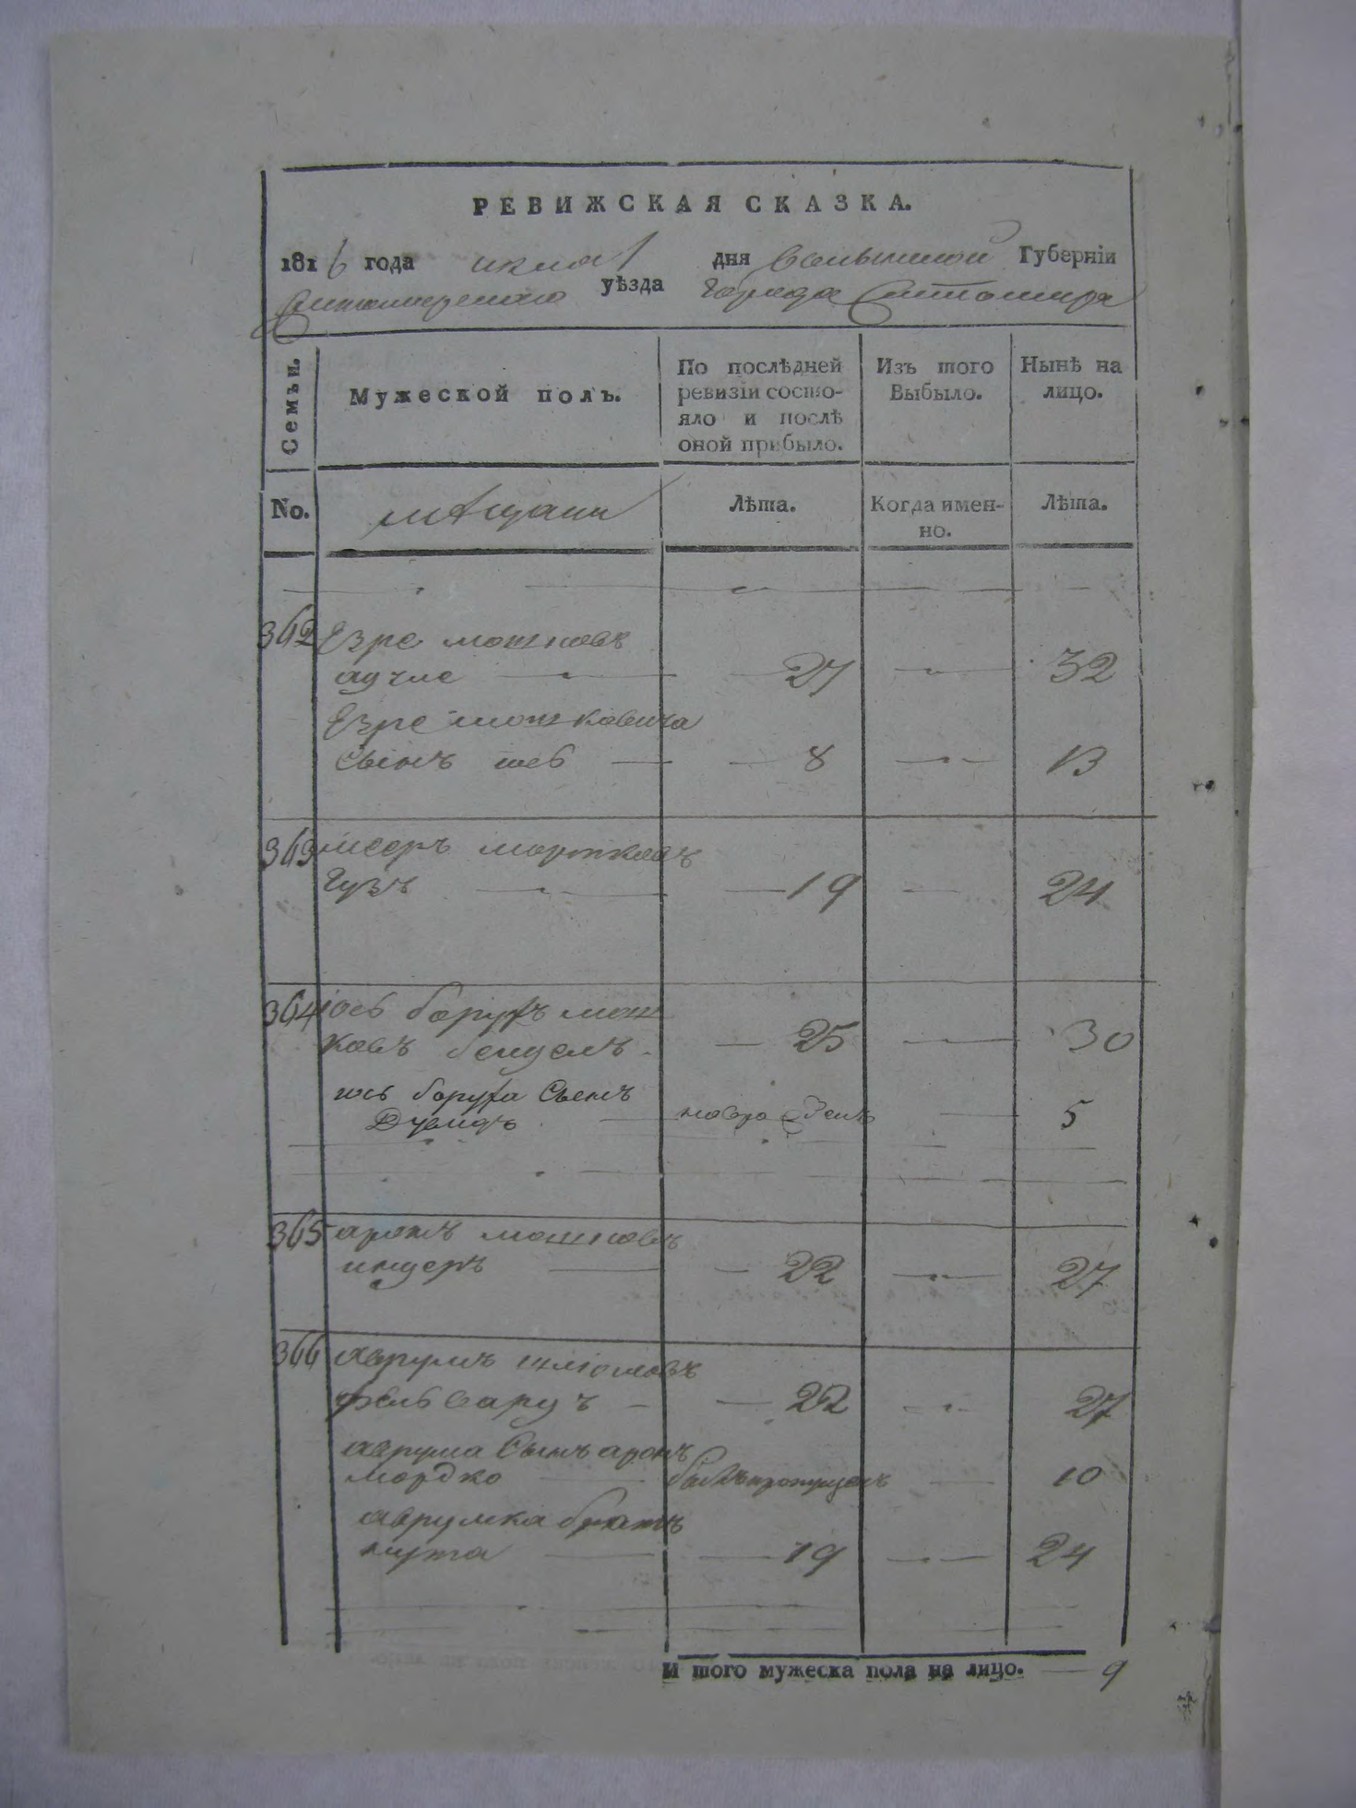 РЕВИЖСКАЯ СКАЗКА.
1816 года июля 1 дня Волынской Губерніи
Житомирского уѣзда города Житомира
Семьи.
Мужеской полъ.
По послѣдней ревизіи состо-
яло и послѣ оной прибыло.
Изъ того Выбыло.
Нынѣ на лицо.
No.
мещани
Лѣта.
Когда имен-
но.
Лѣта.
362 Езре мошковъ
27 32
Езре мошковича
сынъ лев 8 13
363 мееръ мортковъ
гузъ 19 24
364 Иос борухъ мош
ковъ 25 30
иос боруха сынъ
новорожденъ 5
365 аронъ мошковъ
22 27
366 аврумъ шлиомовъ
22 27
аврума сынъ аронъ
мордко былъ пропущенъ 10
аврумка братъ
нута 19 24
И того мужеска пола на лицо. 9